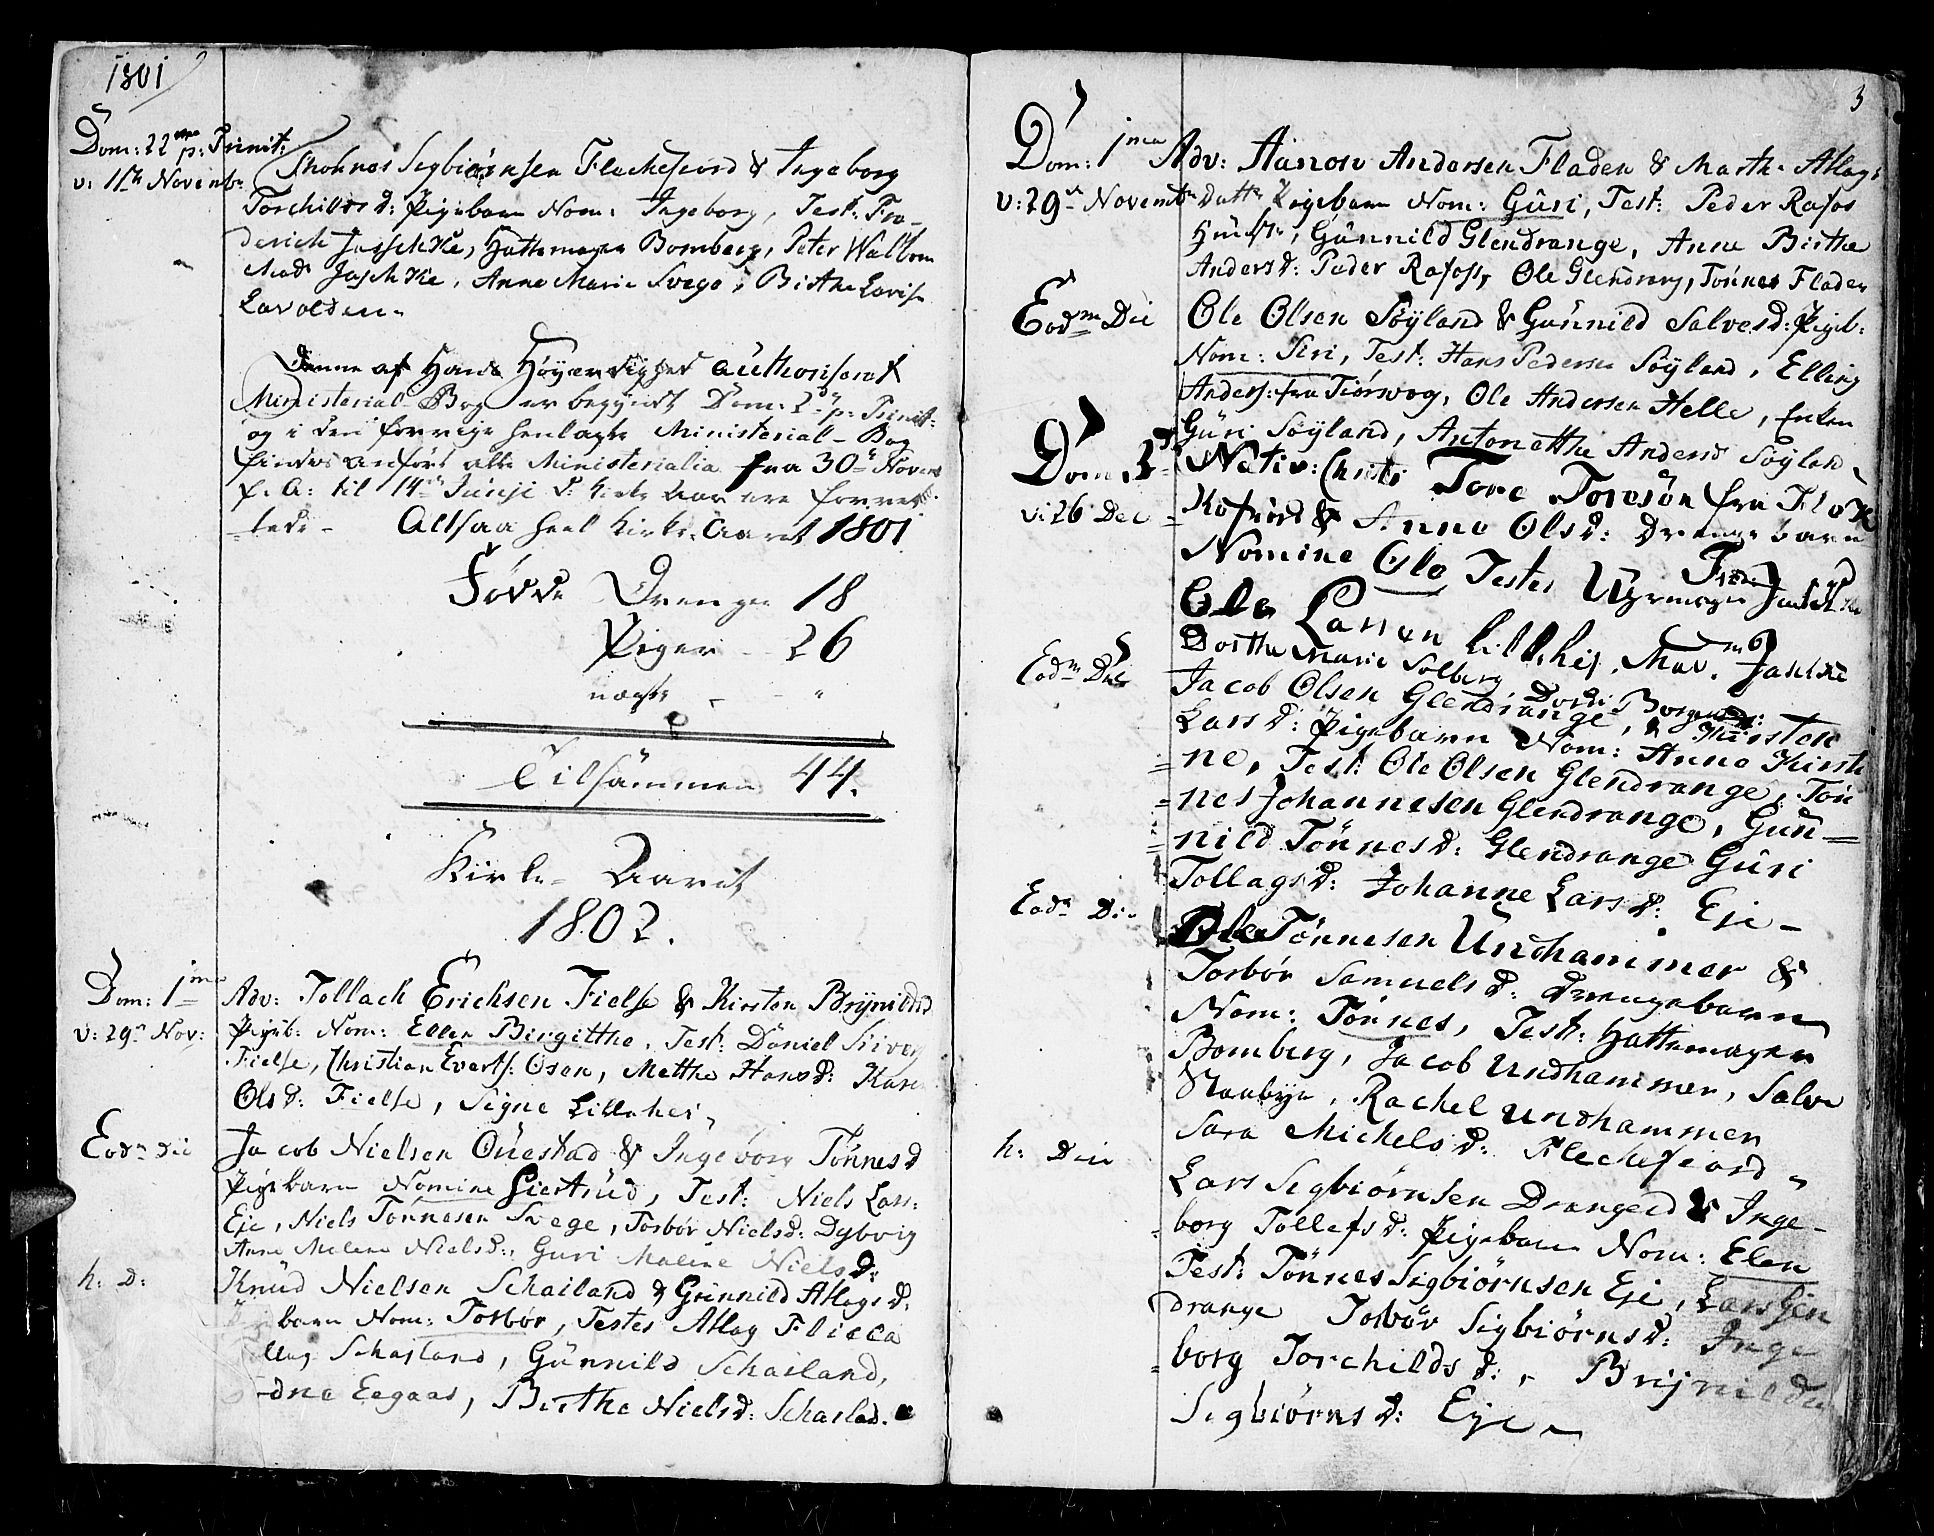 1801
Dom: 22 p: Trinit:
v: 11te Novemb:
Thomas Sigbiørnsen Fleckefiord & Ingeborg
Torchilds d: Pigebarn Nom: Ingeborg, Test: Fre-
derich Jaschke, Hattemager Bomberg, Peter Walbom
Mad Jaschke, Anne Marie Svege, Birthe Lovise
Lavolden.
Denne af Hans Høyærdighed authoriseret
Ministerial-Bog er begyndt Dom: 2 p: Trinit:
og i den forrige henlagte Ministerial-Bog
findes anført alle Ministerialia fra 30te Novem
f. A: til 14de Junji d: Kirke Aar ere forret-
tede - Altsaa heel Kirke-Aaret 1801
Fødde Drenge 18
Piger - 26
uægte - - "
Tilsammen 44.
Kirke-Aaret
1802.
Dom: 1ma Adv: Tollach Erichsen Fielse & Kirsten Brynilds d
v: 29de Nov: Pigeb: Nom: Ellen Birgitthe, Test: Daniel Siver
Fielse, Christian Evertz: Osen, Metthe Hans d: Karen
Ols d: Fielse, Signe Lillehei -
Eodm Die Jacob Nielsen Qvestad & Ingeborg Tønnes d
Pigebarn Nomine Giertrud, Test: Niels Lars:
Eje, Niels Tønnesen Svege, Torbør Niels d: Dybvig
Anne Malene Niels d:, Guri Maline Niels d:
h: D: Knud Nielsen Schailand & Gunnild Atlags d:
barn Nom: Torbør, Testes Atlag Flicca
Schailand, Gunnild Schailand,
Eegaas, Birthe Niels d: Schailad.
3
Dom: 1ma Adv: Aanon Andersen Fladen & Marthe Atlags
v: 29de Novemb: Datter Pigebarn Nom: Guri, Test: Peder Rafos
Hustr:, Gunnild Glendrange, Anne Birthe
Anders d: Peder Rafoss, Ole Glendrang, Tønnes Fladen
Eodm Die Ole Olsen Søyland & Gunnild Salves d: Pigeb:
Nom: Siri, Test: Hans Pedersen Søyland, Elling
Anders: fra Tiørsvog, Ole Andersen Helle, Enken
Guri Søyland, Antonetthe Anders d Søyland
Dom 3 Nativ: Christi Tore Toresøn fra Flek
v: 26 Dec = kefiord & Anne Ols d: Drengebarn
Nomine Ole Testes Uhrmager Fred: Jaschke
Ole Larsen Lillehej, Mad. Jaschke
Dorthe Marie Solberg Dorthe
Eodm Die Jacob Olsen Glendrange, & Kirsten
Lars d: Pigebarn Nom: Anne Kirsti
= ne, Test: Ole Olsen Glendrange, Tøn
= nes Johannesen Glendrange, Gun-
= nild Tønnes d: Glendrange Guri
Tollags d: Johanne Lars d: Eje -
Eodm Die Ole Tønnesen Undhammer &
Torbør Samuels d: Drengebarn
Nom: Tønnes, Test: Hattemager
Bomberg, Jacob Undhammer, Salve
Raabye, Rachel Undhammer
Sara Michels d: Fleckefiord "
h: Die Lars Sigbiørnsen Drangeid & Inge-
borg Tollefs d: Pigebarn Nom: Elen
Test: Tønnes Sigbiørnsen Eje, Lars Gjen
drange Torbør Sigbiørns d: Inge
= borg Torchilds d:, Brynilde
Sigbiørns d: Eje -